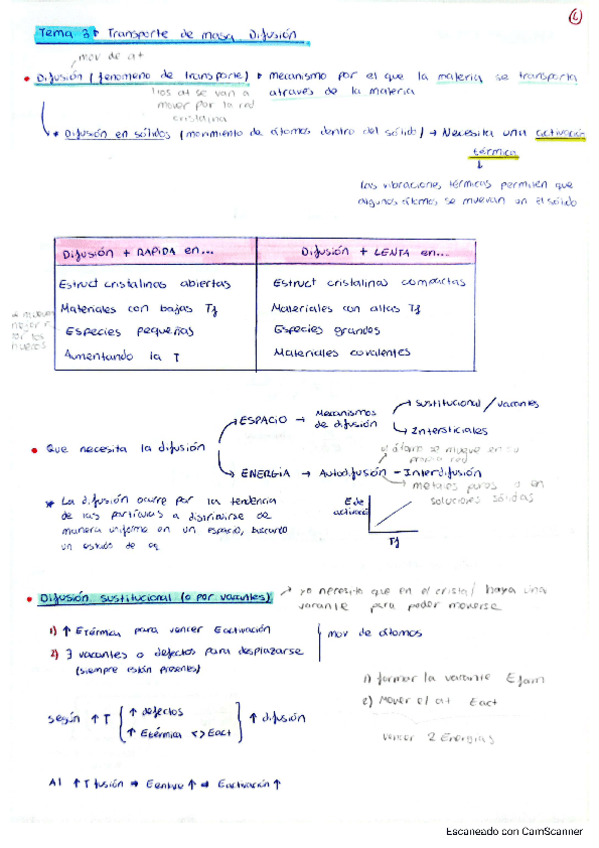 L
Tema 3: Transporte de masa. Difusión
mov de at
• Difusión (fenomeno de transporte) • mecanismo por el que la materia se transporta
través de la materia
los at se van a
mover por la red
cristalina
* Difusión en sólidos (movimiento de átomos dentro del sólido) → Necesita una activación
térmica
↓
las vibraciones térmicas permiten que
algunos átomos se muevan en el sólido
Difusión + RAPIDA en... Difusión + LENTA en...
Estruct cristalinas abiertas Estruct cristalinas compactas
Materiales con bajas Tf Materiales con altas Tf
Especies pequeñas Especies grandes
Aumentando la T Materiales covalentes
se mueven
mejor
por los
huecos
• Que necesita la difusión
ESPACIO → Mecanismos de difusión
Sustitucional / vacantes
Intersticiales
ENERGIA → Autodifusión - Interdifusión
el átomo se mueve en su
propia red
metales puros o en
soluciones sólidas
* La difusión ocurre por la tendencia
de las partículas a distribuirse de
manera uniforme en un espacio, buscando
un estado de eq
E de
activació
Tf
• Difusión sustitucional (o por vacantes)
→ yo necesito que en el cristal haya una
vacante para poder moverse
1) ↑ Etérmica para vencer Eactivación
2) ∃ vacantes o defectos para desplazarse
(siempre están presentes)
mov de átomos
1) formar la vacante Eform
2) Mover el at Eact
vencer 2 Energías
según ↑ T { ↑ defectos
↑ Etérmica <> Eact } ↑ difusión
Al ↑ T fusión → Eenlace ↑ → Eactivación ↑
Escaneado con CamScanner